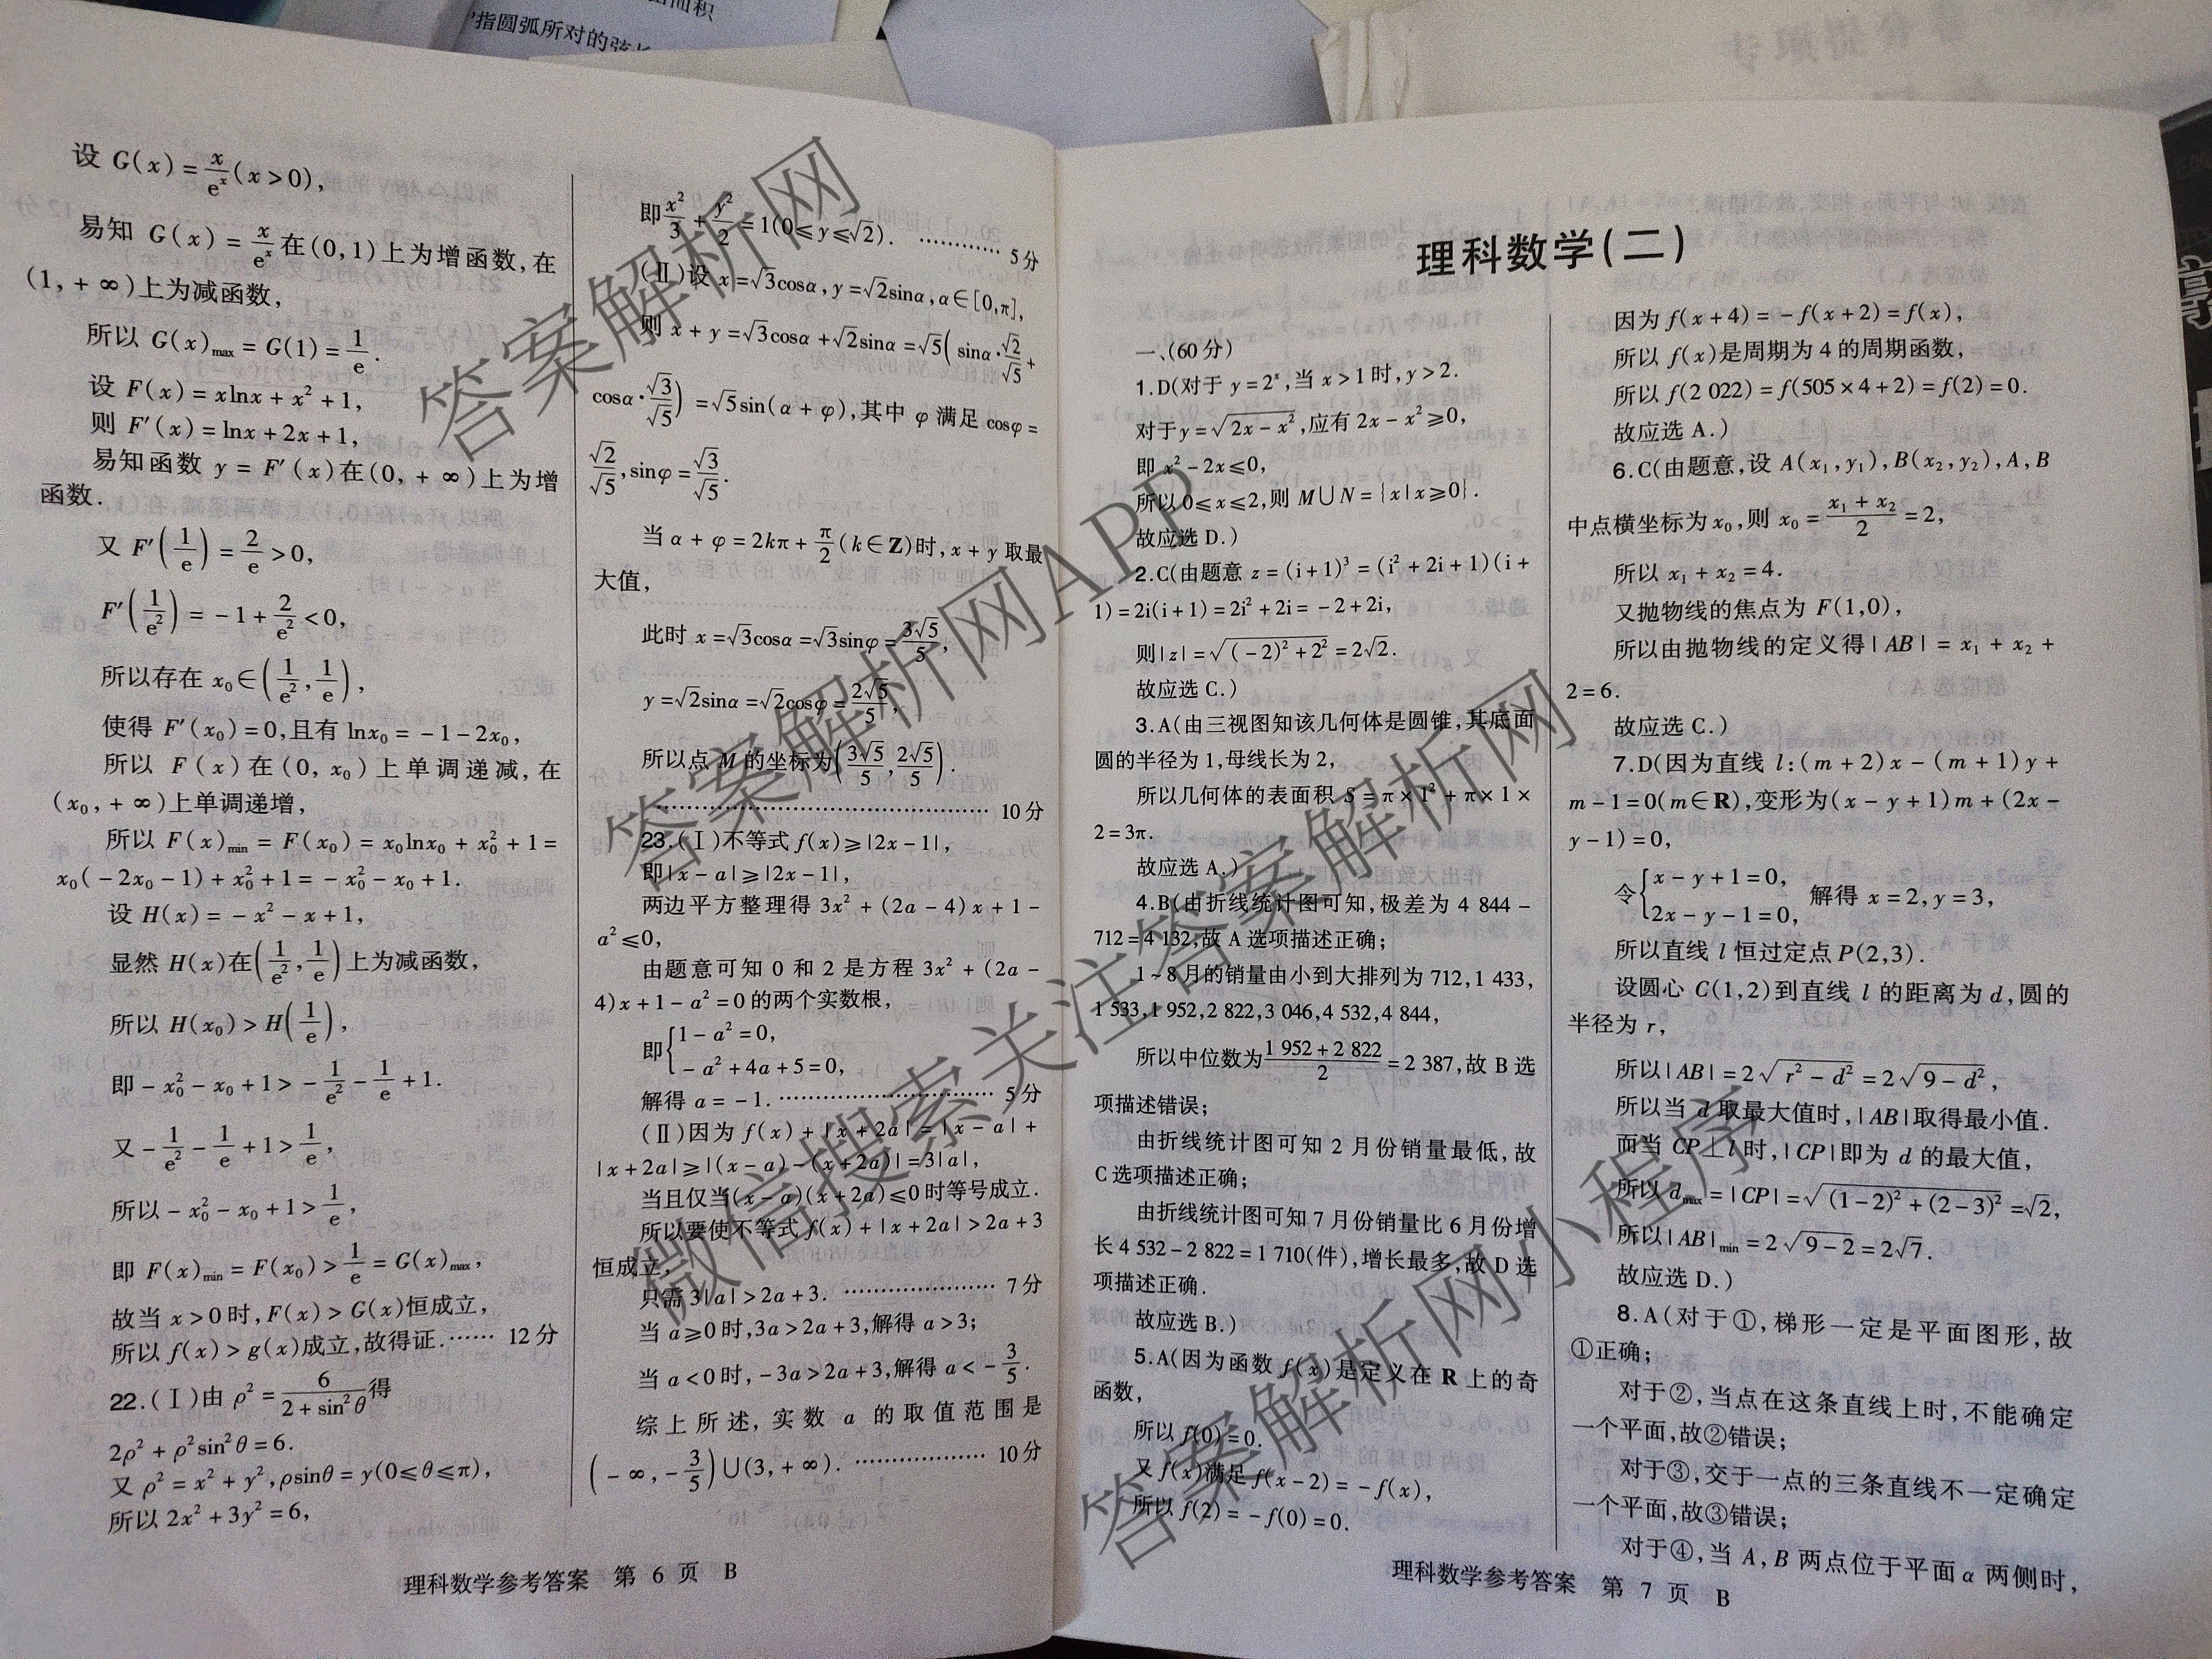 指圆弧所对的弦长
设 G(x)=x/eˣ(x>0),
易知 G(x)=x/eˣ在(0,1)上为增函数,在
(1,+∞)上为减函数,
所以 G(x)max=G(1)=1/e.
设 F(x)=xlnx+x²+1,
则 F′(x)=lnx+2x+1,
易知函数 y=F′(x)在(0,+∞)上为增
函数.
又 F′(1/e)=2/e>0,
F′(1/e²)=-1+2/e²<0,
所以存在 x₀∈(1/e²,1/e),
使得 F′(x₀)=0,且有 lnx₀=-1-2x₀,
所以 F(x)在(0,x₀)上单调递减,在
(x₀,+∞)上单调递增,
所以 F(x)min=F(x₀)=x₀lnx₀+x₀²+1=
x₀(-2x₀-1)+x₀²+1=-x₀²-x₀+1.
设 H(x)=-x²-x+1,
显然 H(x)在(1/e²,1/e)上为减函数,
所以 H(x₀)>H(1/e),
即-x₀²-x₀+1>-1/e²-1/e+1.
又-1/e²-1/e+1>1/e,
所以-x₀²-x₀+1>1/e,
即 F(x)min=F(x₀)>1/e=G(x)max,
故当 x>0时,F(x)>G(x)恒成立,
所以 f(x)>g(x)成立,故得证.…… 12分
22.(Ⅰ)由 ρ²=6/(2+sin²θ)得
2ρ²+ρ²sin²θ=6.
又 ρ²=x²+y²,ρsinθ=y(0≤θ≤π),
所以 2x²+3y²=6,
即x²/3+y²/2=1(0≤y≤√2). ………… 5分
(Ⅱ)设 x=√3cosα,y=√2sinα,α∈[0,π],
则 x+y=√3cosα+√2sinα=√5(sinα·√2/√5+
cosα·√3/√5)=√5sin(α+φ),其中 φ 满足 cosφ=
√2/√5,sinφ=√3/√5.
当 α+φ=2kπ+π/2(k∈Z)时,x+y 取最
大值,
此时 x=√3cosα=√3sinφ=3√5/5,
y=√2sinα=√2cosφ=2√5/5,
所以点 M 的坐标为(3√5/5,2√5/5).
………………………………… 10分
23.(Ⅰ)不等式 f(x)≥|2x-1|,
即|x-a|≥|2x-1|,
两边平方整理得 3x²+(2a-4)x+1-
a²≤0,
由题意可知 0 和 2 是方程 3x²+(2a-
4)x+1-a²=0的两个实数根,
即{1-a²=0,
-a²+4a+5=0,
解得 a=-1.………………………… 5分
(Ⅱ)因为 f(x)+|x+2a|=|x-a|+
|x+2a|≥|(x-a)-(x+2a)|=3|a|,
当且仅当(x-a)(x+2a)≤0时等号成立.
所以要使不等式 f(x)+|x+2a|>2a+3
恒成立,
只需 3|a|>2a+3. ………………… 7分
当 a≥0时,3a>2a+3,解得 a>3;
当 a<0时,-3a>2a+3,解得 a<-3/5.
综上所述,实数 a 的取值范围是
(-∞,-3/5)∪(3,+∞). ……………… 10分
理科数学参考答案 第 6 页 B
理科数学(二)
一、(60分)
1.D(对于 y=2ˣ,当 x>1时,y>2.
对于y=√(2x-x²),应有 2x-x²≥0,
即 x²-2x≤0,
所以0≤x≤2,则 M∪N={x|x≥0}.
故应选 D.)
2.C(由题意 z=(i+1)³=(i²+2i+1)(i+
1)=2i(i+1)=2i²+2i=-2+2i,
则|z|=√((-2)²+2²)=2√2.
故应选 C.)
3.A(由三视图知该几何体是圆锥,其底面
圆的半径为1,母线长为2,
所以几何体的表面积 S=π×1²+π×1×
2=3π.
故应选 A.)
4.B(由折线统计图可知,极差为 4 844-
712=4 132,故 A 选项描述正确;
1~8月的销量由小到大排列为 712,1 433,
1 533,1 952,2 822,3 046,4 532,4 844,
所以中位数为(1 952+2 822)/2=2 387,故 B 选
项描述错误;
由折线统计图可知 2 月份销量最低,故
C 选项描述正确;
由折线统计图可知 7 月份销量比 6 月份增
长 4 532-2 822=1 710(件),增长最多,故 D 选
项描述正确.
故应选 B.)
5.A(因为函数 f(x)是定义在 R 上的奇
函数,
所以 f(0)=0.
又 f(x)满足 f(x-2)=-f(x),
所以 f(2)=-f(0)=0.
因为 f(x+4)=-f(x+2)=f(x),
所以 f(x)是周期为 4 的周期函数,
所以 f(2 022)=f(505×4+2)=f(2)=0.
故应选 A.)
6.C(由题意,设 A(x₁,y₁),B(x₂,y₂),A,B
中点横坐标为x₀,则 x₀=(x₁+x₂)/2=2,
所以 x₁+x₂=4.
又抛物线的焦点为 F(1,0),
所以由抛物线的定义得|AB|=x₁+x₂+
2=6.
故应选 C.)
7.D(因为直线 l:(m+2)x-(m+1)y+
m-1=0(m∈R),变形为(x-y+1)m+(2x-
y-1)=0,
令{x-y+1=0,
2x-y-1=0, 解得 x=2,y=3,
所以直线 l 恒过定点P(2,3).
设圆心 C(1,2)到直线 l 的距离为 d,圆的
半径为 r,
所以|AB|=2√(r²-d²)=2√(9-d²),
所以当 d 取最大值时,|AB|取得最小值.
而当 CP⊥l时,|CP|即为 d 的最大值,
所以 dmax=|CP|=√((1-2)²+(2-3)²)=√2,
所以|AB|min=2√(9-2)=2√7.
故应选 D.)
8.A(对于①,梯形一定是平面图形,故
①正确;
对于②,当点在这条直线上时,不能确定
一个平面,故②错误;
对于③,交于一点的三条直线不一定确定
一个平面,故③错误;
对于④,当 A,B 两点位于平面 α 两侧时,
理科数学参考答案 第 7 页 B
答案解析网
答案解析网APP
微信搜索关注答案解析网
答案解析网小程序